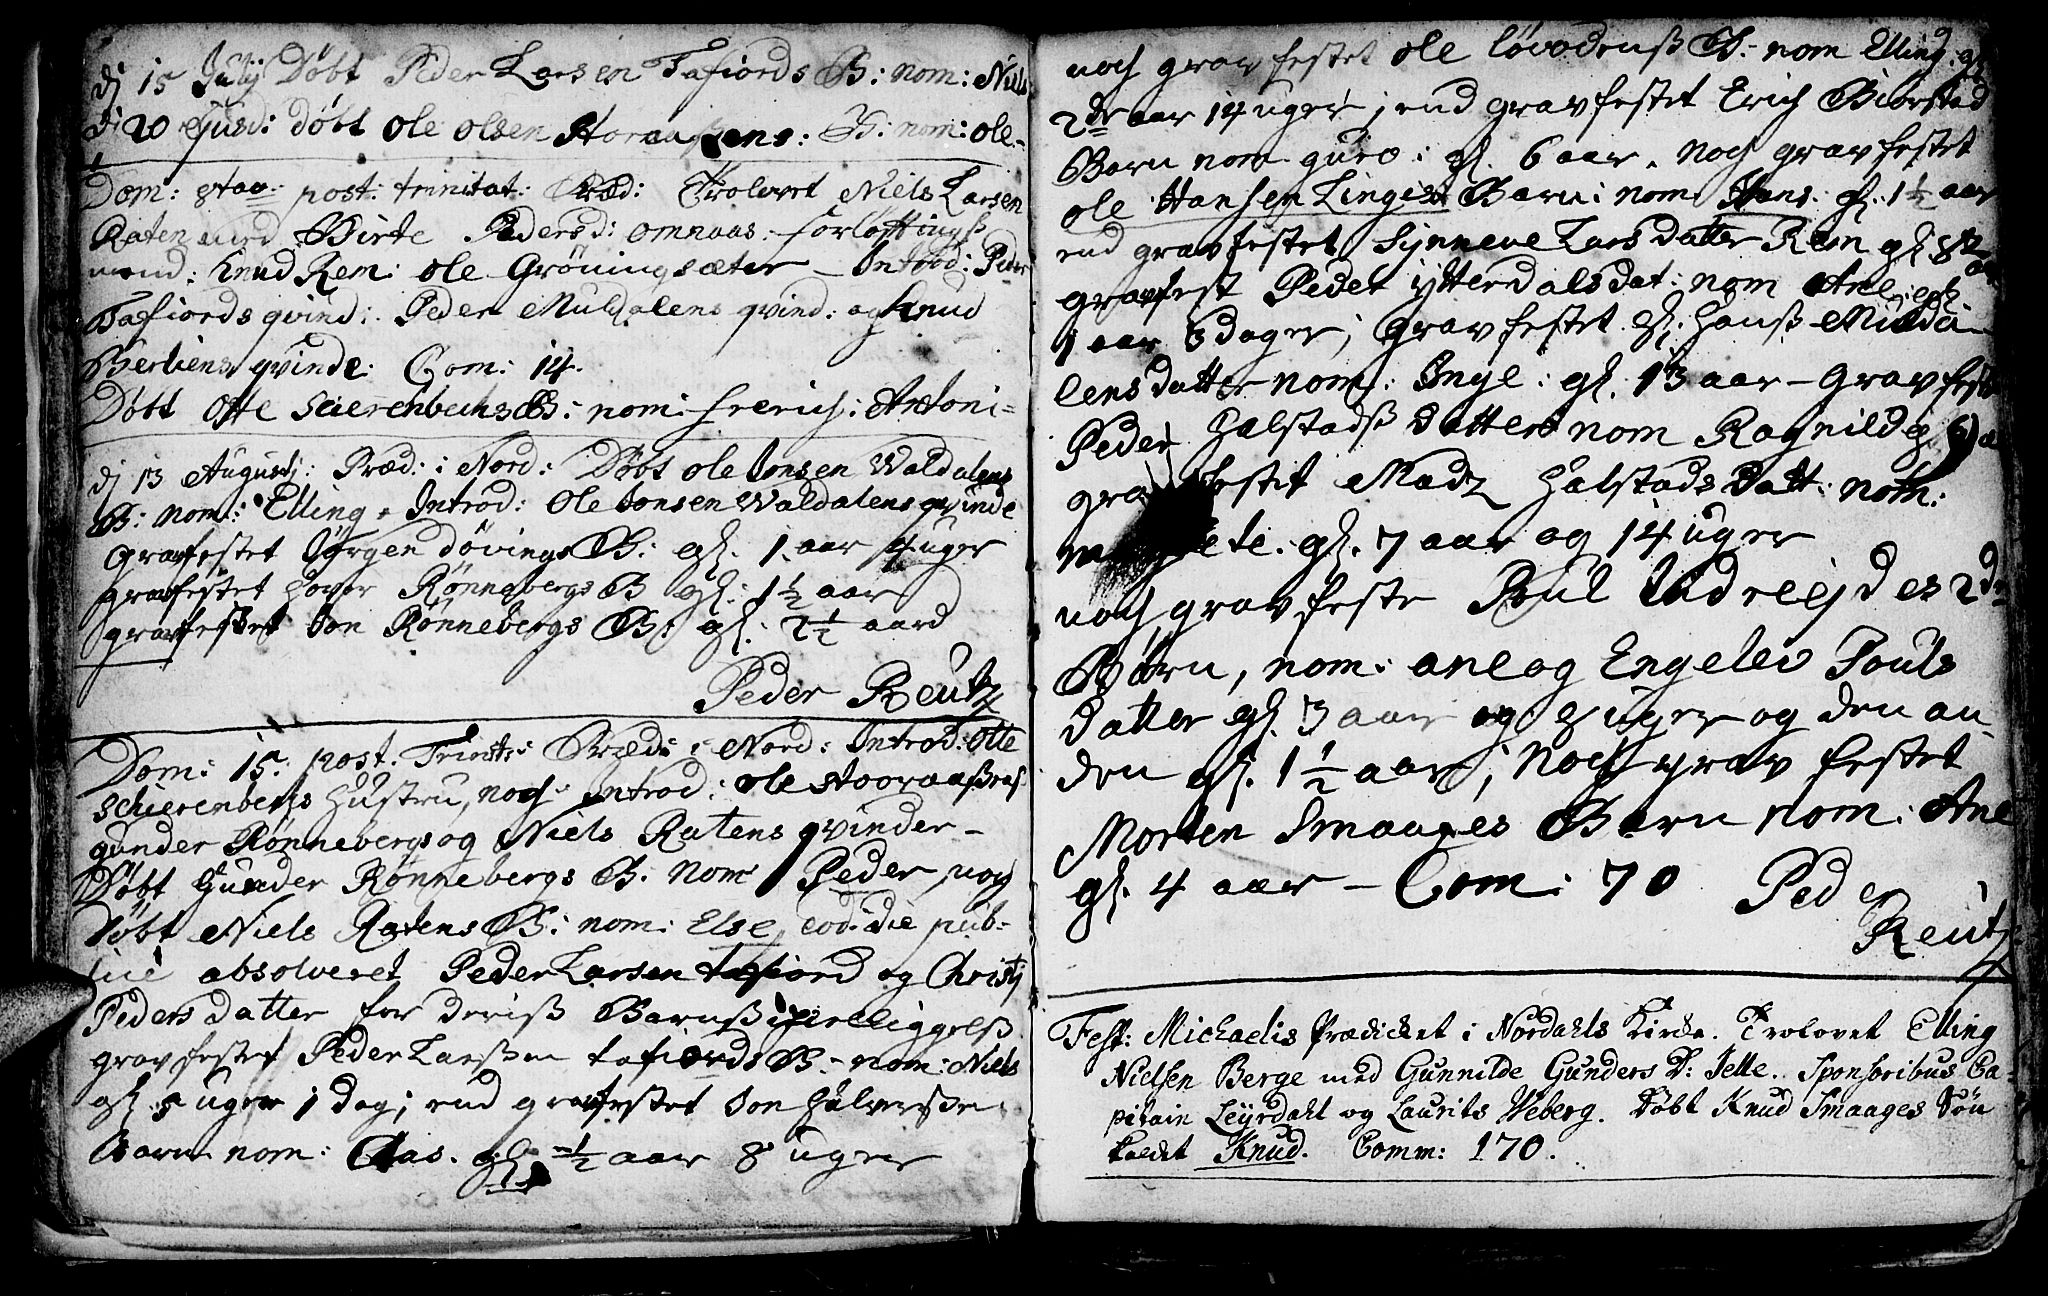 dj 15 Julij Døbt Peder Larsen Tafiords B: nom: Niels
dj 20 Ejusd: døbt ole olsen B: nom: ole
Dom: 8taa post: trinitat: Præd: Trolovet Niels Larsen
Raten med Birte Pedersd: omnaas: forlofnings
mend: Knud Rem: ole Grøningsæter - Introd: Peder
Tafiords qvind: Peder Muldalens qvind: og Knud
Berliens qvinde: Com: 14.
Døbt Otte B: nom: frerich: Antoni-
dj 13 Augustj: Præd: i Nord: Døbt ole Jonsen Waldalens
B: nom: Elling, Introd: Ole Jonsen Waldalens qvinde
Gravfestet Jørgen døvings B: gl. 1 aar 4 uger
gravfestet hover Rønnebergs B gl: 1 1/2 aar
gravfestet Jon Rønnebergs B: gl: 2 1/2 aard
Peder Reutz
Dom: 15: post. Trinit: Præd: i Nord: Introd: Otte
Schierenbergs Hustru, noch Introd: ole
gunder Rønnebergs og Niels Ratens qvinder-
Døbt Gunder Rønnebergs B: Nom Peder, noch
Døbt Niels Ratens B: nom: Else, eod: die pub-
lice absolveret Peder Larsen tafiord og Christj
Peders datter for deris Barns ihielliggelse
gravfestet Peder Larssen tafiords B:- nom: Niels
gl. 5 uger 1 dag; end gravfestet Jon Halversens
Barn nom: Claas. gl. 1/2 aar 8 uger
noch gravfestet ole løvodens B:- nom Elling: gl
2de aar 14 uger; end gravfestet Erich Biørstad
Barn nom guro: gl. 6 aar. noch gravfestet
ole Hansen Linges Barn: nom Hans: gl. 1 1/2 aar
end gravfestet Synneve Larsdatter Rem gl 8
gravfest Peder ytterdals dat: nom Ane: gl
1 aar 3 dager; gravfestet gl. Hans Mulda-
lens datter nom: Inge: gl. 13 aar - Gravfest
Peder Halstads datter nom Ragnild gl 6
gravfestet Madz Halstads Datt: nom:
gl. 7 aar og 14 uger
noch gravfeste Poul Indreejdes 2de
Børn, nom: ane og Engelev Pouls
datter gl. 3 aar og 8 uger og den an-
den gl. 1 1/2 aar; Noch grav festet
Morten Smaages Barn nom: Ane
gl. 4 aar - Com: 70 Peder
Reutz
Fest: Michaelis Prædicket i Nordahls Kirke. Trolovet Elling
Nielsen Berge med Gunnilde Gunders D: Jelle. Sponsoribus Ca-
pitain Leyrdahl og Laurits Weberg. Døbt Knud Smaages Søn
kaldet Knud. Comm: 170.